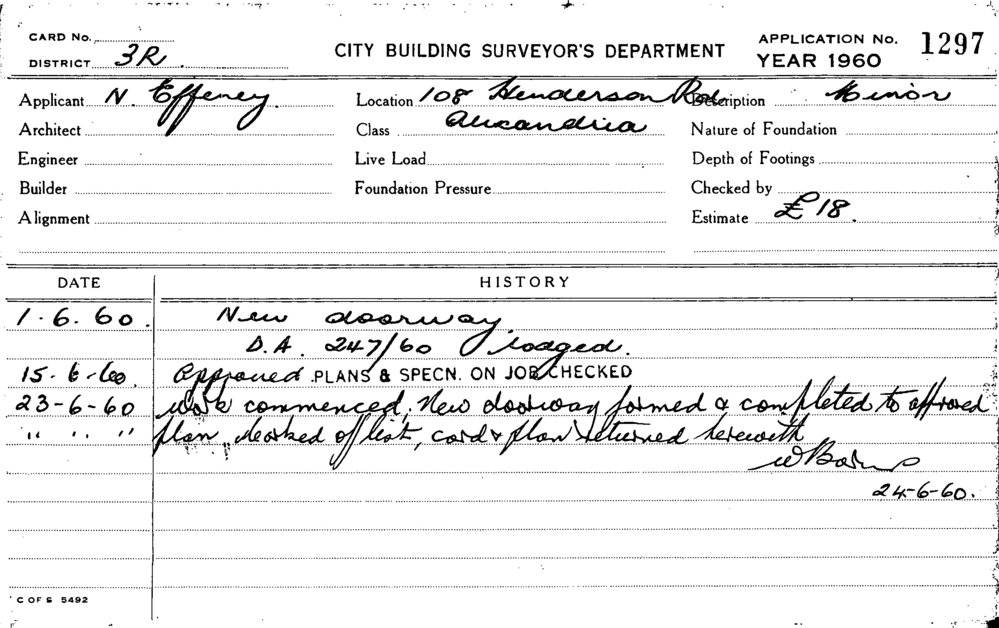 CARD No.
DISTRICT 3R.
CITY BUILDING SURVEYOR'S DEPARTMENT
APPLICATION No. 1297
YEAR 1960
Applicant N. Effeney. Location 108 Henderson Rd. Description Minor
Architect Class Alexandria Nature of Foundation
Engineer Live Load Depth of Footings
Builder Foundation Pressure Checked by
Alignment Estimate £18.
DATE HISTORY
1.6.60. New doorway.
D.A. 247/60 lodged.
15-6-60. Approved PLANS & SPECN. ON JOB CHECKED
23-6-60 Work commenced. New doorway formed & completed to approved
" " " plan. Marked off list, card & plan returned herewith
24-6-60.
C OF S 5492